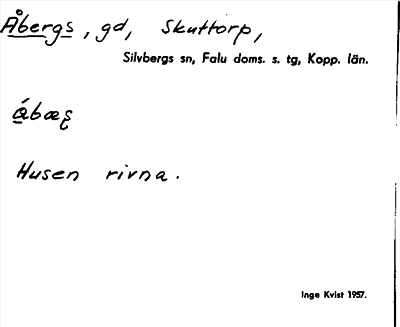 Åbergs, gd, Skuttorp,
Silvbergs sn, Falu doms. s. tg, Kopp. län.
Husen rivna.
Inge Kvist 1957.